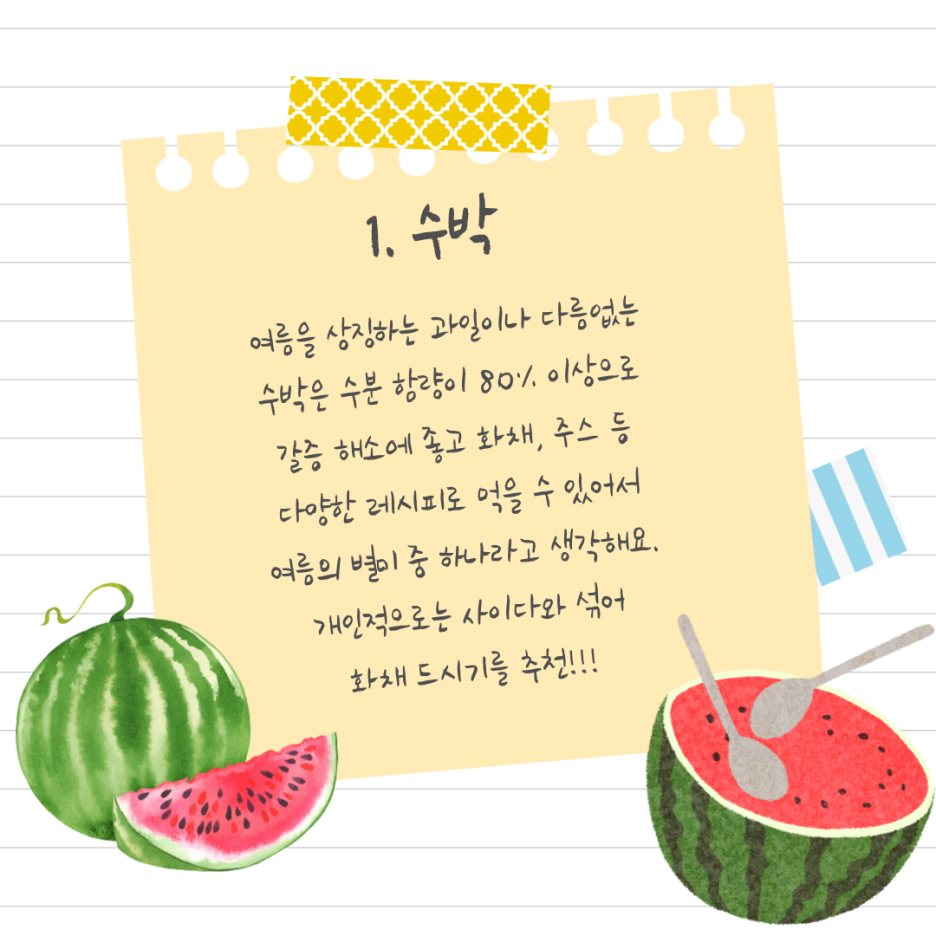 1. 수박
여름을 상징하는 과일이나 다름없는
수박은 수분 함량이 80% 이상으로
갈증 해소에 좋고 화채, 주스 등
다양한 레시피로 먹을 수 있어서
여름의 별미 중 하나라고 생각해요.
개인적으로는 사이다와 섞어
화채 드시기를 추천!!!